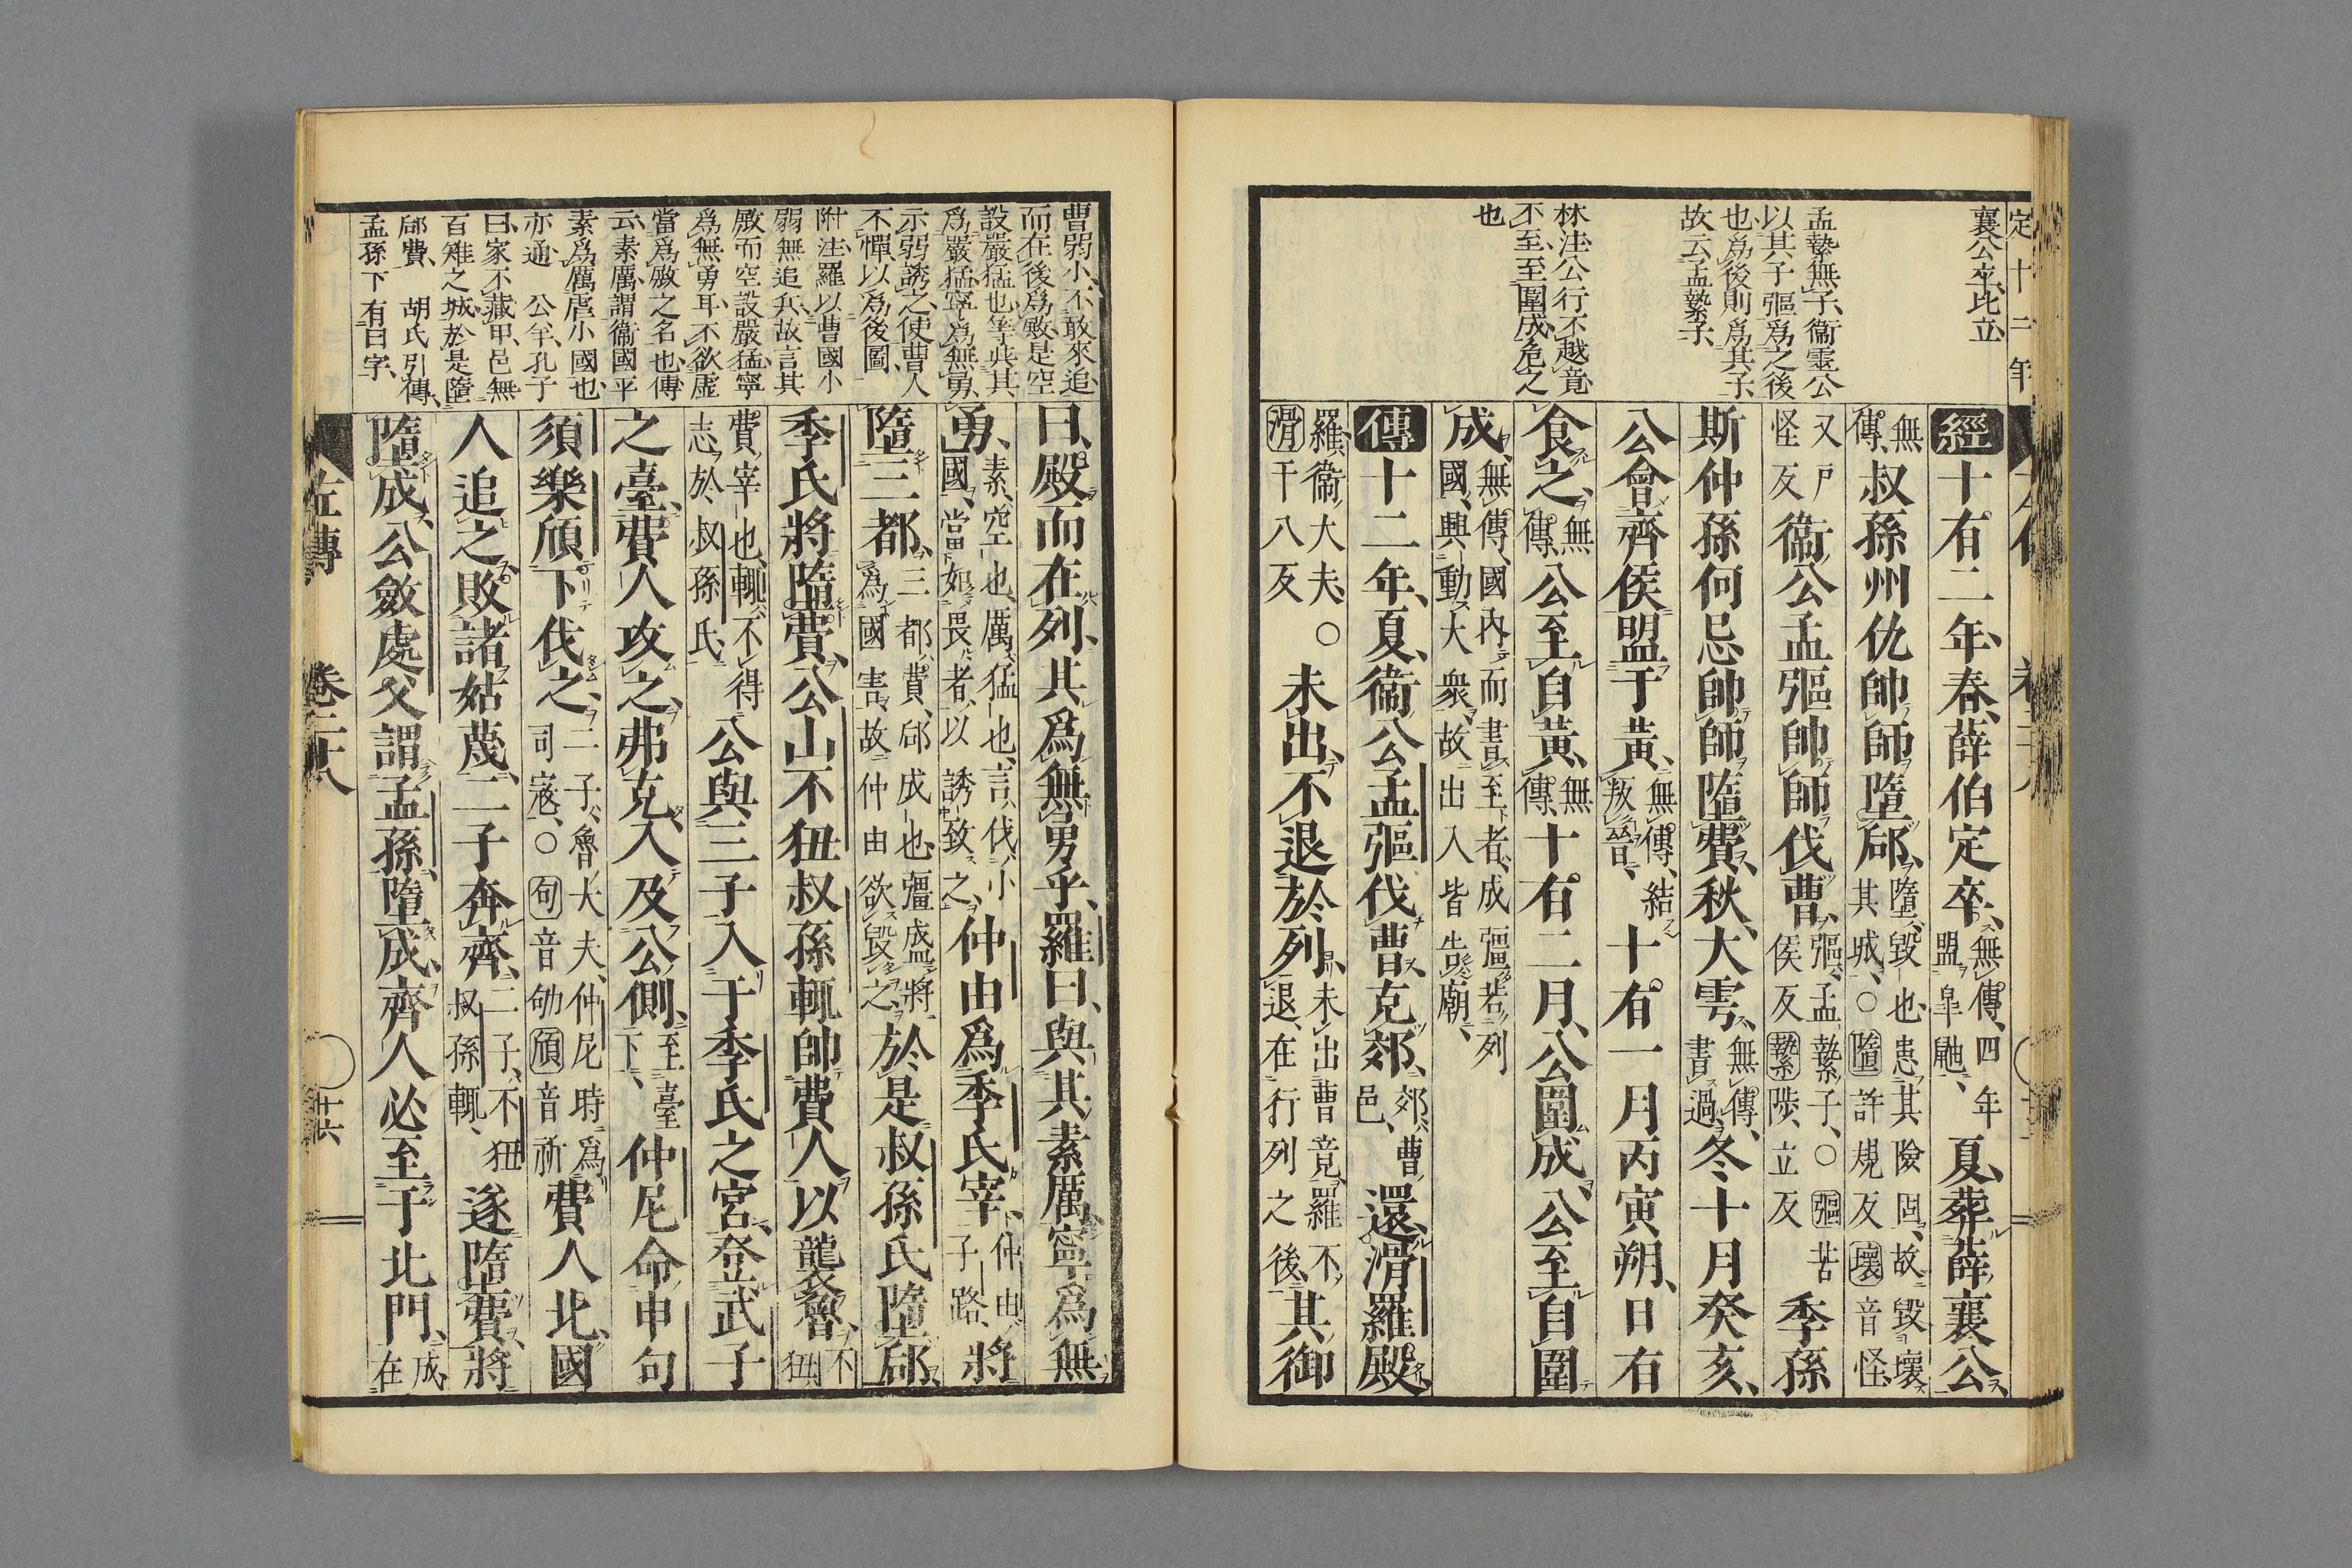 定十二年
襄公卒比立
孟縶無子衞靈公
以其子彄爲之後
也爲後則爲其子
故云孟縶子
林注公行不越竟
不至至圍成危之
也
經十有二年春薛伯定卒無傳四年盟皐鼬夏葬薛襄公
無傳叔孫州仇帥師墮郈墮毀也患其險固故毀壞其城○墮許規反壞音怪
又戸怪反衞公孟彄帥師伐曹彄孟縶子○彄苦侯反縶陟立反季孫
斯仲孫何忌帥師墮費秋大雩無傳書過冬十月癸亥
公會齊侯盟于黃無傳結叛晉十有一月丙寅朔日有
食之無傳公至自黃無傳十有二月公圍成公至自圍
成無傳國內而書至者成彊若列國興動大衆故出入皆告廟
傳十二年夏衞公孟彄伐曹克郊郊曹邑還滑羅殿
羅衞大夫○滑干八反未出不退於列未出曹竟羅不退在行列之後其御
曹弱小不敢來追
而在後爲殿是空
設嚴猛也等與其
爲嚴猛寧爲無勇
示弱誘之使曹人
不憚以爲後圖
附注羅以曹國小
弱無追兵故言其
殿而空設嚴猛寧
爲無勇耳不欲虛
當爲殿之名也傳
云素厲謂衞國平
素爲厲虐小國也
亦通 公羊孔子
曰家不藏甲邑無
百雉之城於是墮
郈費 胡氏引傳
孟孫下有曰字
曰殿而在列其爲無勇乎羅曰與其素厲寧爲無
勇素空也厲猛也言伐小國當如畏者以誘致之仲由爲季氏宰仲由子路將
墮三都三都費郈成也彊盛將爲國害故仲由欲毀之於是叔孫氏墮郈
季氏將墮費公山不狃叔孫輒帥費人以襲魯不狃
費宰也輒不得志於叔孫氏公與三子入于季氏之宮登武子
之臺費人攻之弗克入及公側至臺下仲尼命申句
須樂頎下伐之二子魯大夫仲尼時爲司寇○句音劬頎音祈費人北國
人追之敗諸姑蔑二子奔齊二子不狃叔孫輒遂墮費將
墮成公斂處父謂孟孫墮成齊人必至于北門成在
左傳 卷二十八 十六